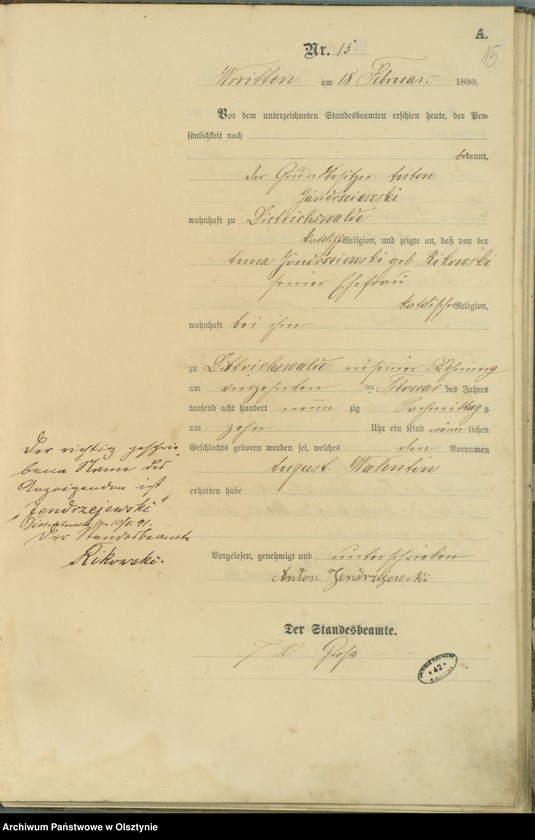 A.
15
Nr. 15
Woritten am 18 Februar 1890.
Vor dem unterzeichneten Standesbeamten erschien heute, der Per-
sönlichkeit nach
bekannt,
der Grundbesitzer Anton
Jandrseiewski
wohnhaft zu Dietrichswalde
katolischer Religion, und zeigte an, daß von der
Anna Jandrseiewski geb Rikowski
seiner Ehefrau
katolischer Religion,
wohnhaft bei ihm
zu Dietrichswalde in seiner Wohnung
am vierzehnten ten Februar des Jahres
tausend acht hundert neun zig Nachmittag s
um zehn Uhr ein Kind männ lichen
Geschlechts geboren worden sei, welches den Vornamen
August Walentin
erhalten habe
Der richtig geschrie-
bene Name des
Anzeigenden ist
„Jendrzejewski"
Der Standesbeamte
Rikowski.
Vorgelesen, genehmigt und unterschrieben
Anton Jendrzejewski
Der Standesbeamte.
Groß
42
Archiwum Państwowe w Olsztynie